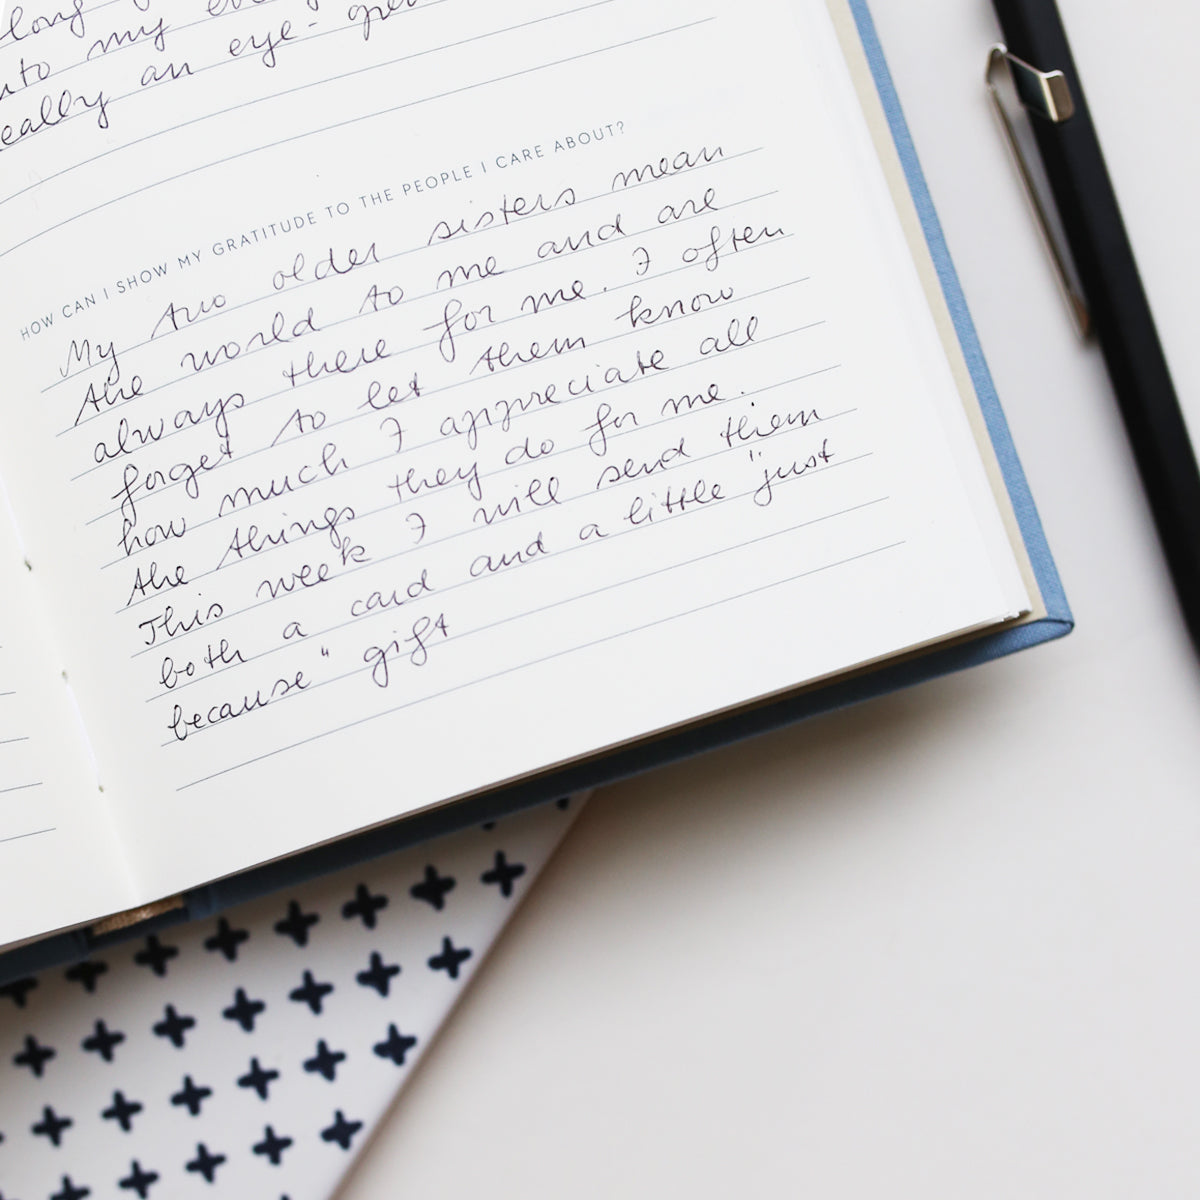 long
my
an eye-
HOW CAN I SHOW MY GRATITUDE TO THE PEOPLE I CARE ABOUT?
My two older sisters mean
the world to me and are
always there for me. I often
forget to let them know
how much I appreciate all
the things they do for me.
This week I will send them
both a card and a little "just
because" gift